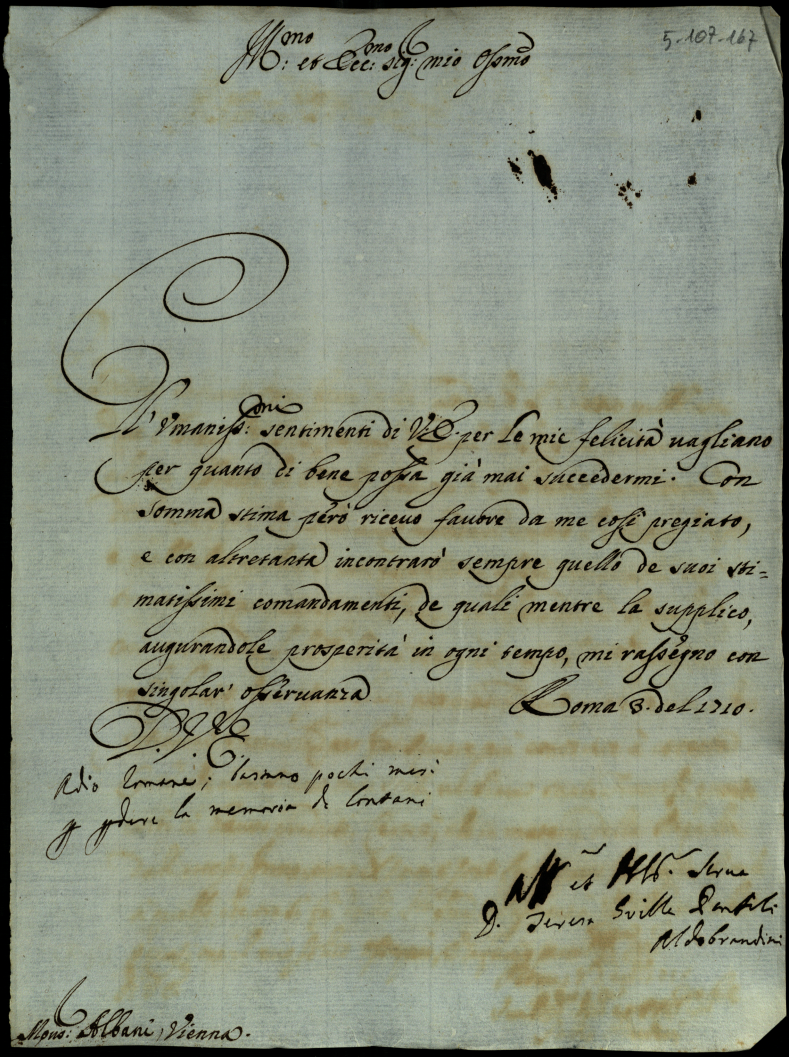 5-107-167
Ill:mo et Ecc:mo Sig: mio Oss:mo
Gl' Umaniss:mi sentimenti di V.E. per le mie felicità vagliano
per quanto di bene possa già mai succedermi. Con
somma stima però ricevo favore da me così pregiato,
e con altretanta incontrarò sempre quello de suoi sti=
matissimi comandamenti, de quali mentre la supplico,
augurandole prosperità in ogni tempo, mi rassegno con
singolar' osservanza Roma 3. del 1710.
D. V. E.
Adio Romani; bastano pochi mesi
p perdere la memoria di lontani
Aff.ma et Obb.ma Serva
D. Teresa Grillo Panfili
Aldobrandini
Mons: Albani, Vienna.